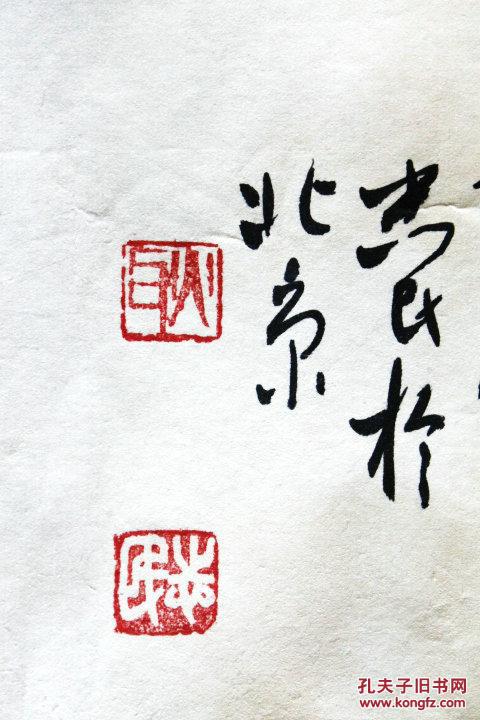 志民於
北京
志民
孔夫子旧书网
www.kongfz.com